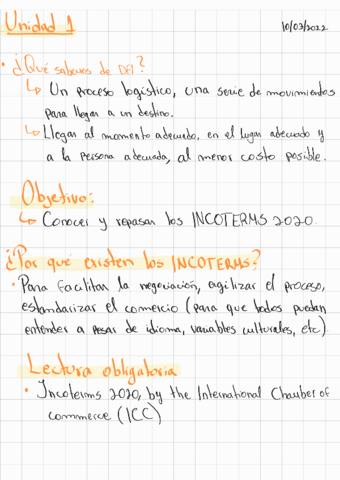 Unidad 1
10/03/2022
• ¿Qué sabemos de DFI?
↳ Un proceso logístico, una serie de movimientos
para llegar a un destino.
↳ Llegar al momento adecuado, en el lugar adecuado y
a la persona adecuada, al menor costo posible.
Objetivo:
↳ Conocer y repasar los INCOTERMS 2020.
¿Por qué existen los INCOTERMS?
• Para facilitar la negociación, agilizar el proceso,
estandarizar el comercio (para que todos puedan
entender a pesar de idioma, variables culturales, etc)
Lectura obligatoria
• Incoterms 2020, by the International Chamber of
commerce (ICC)